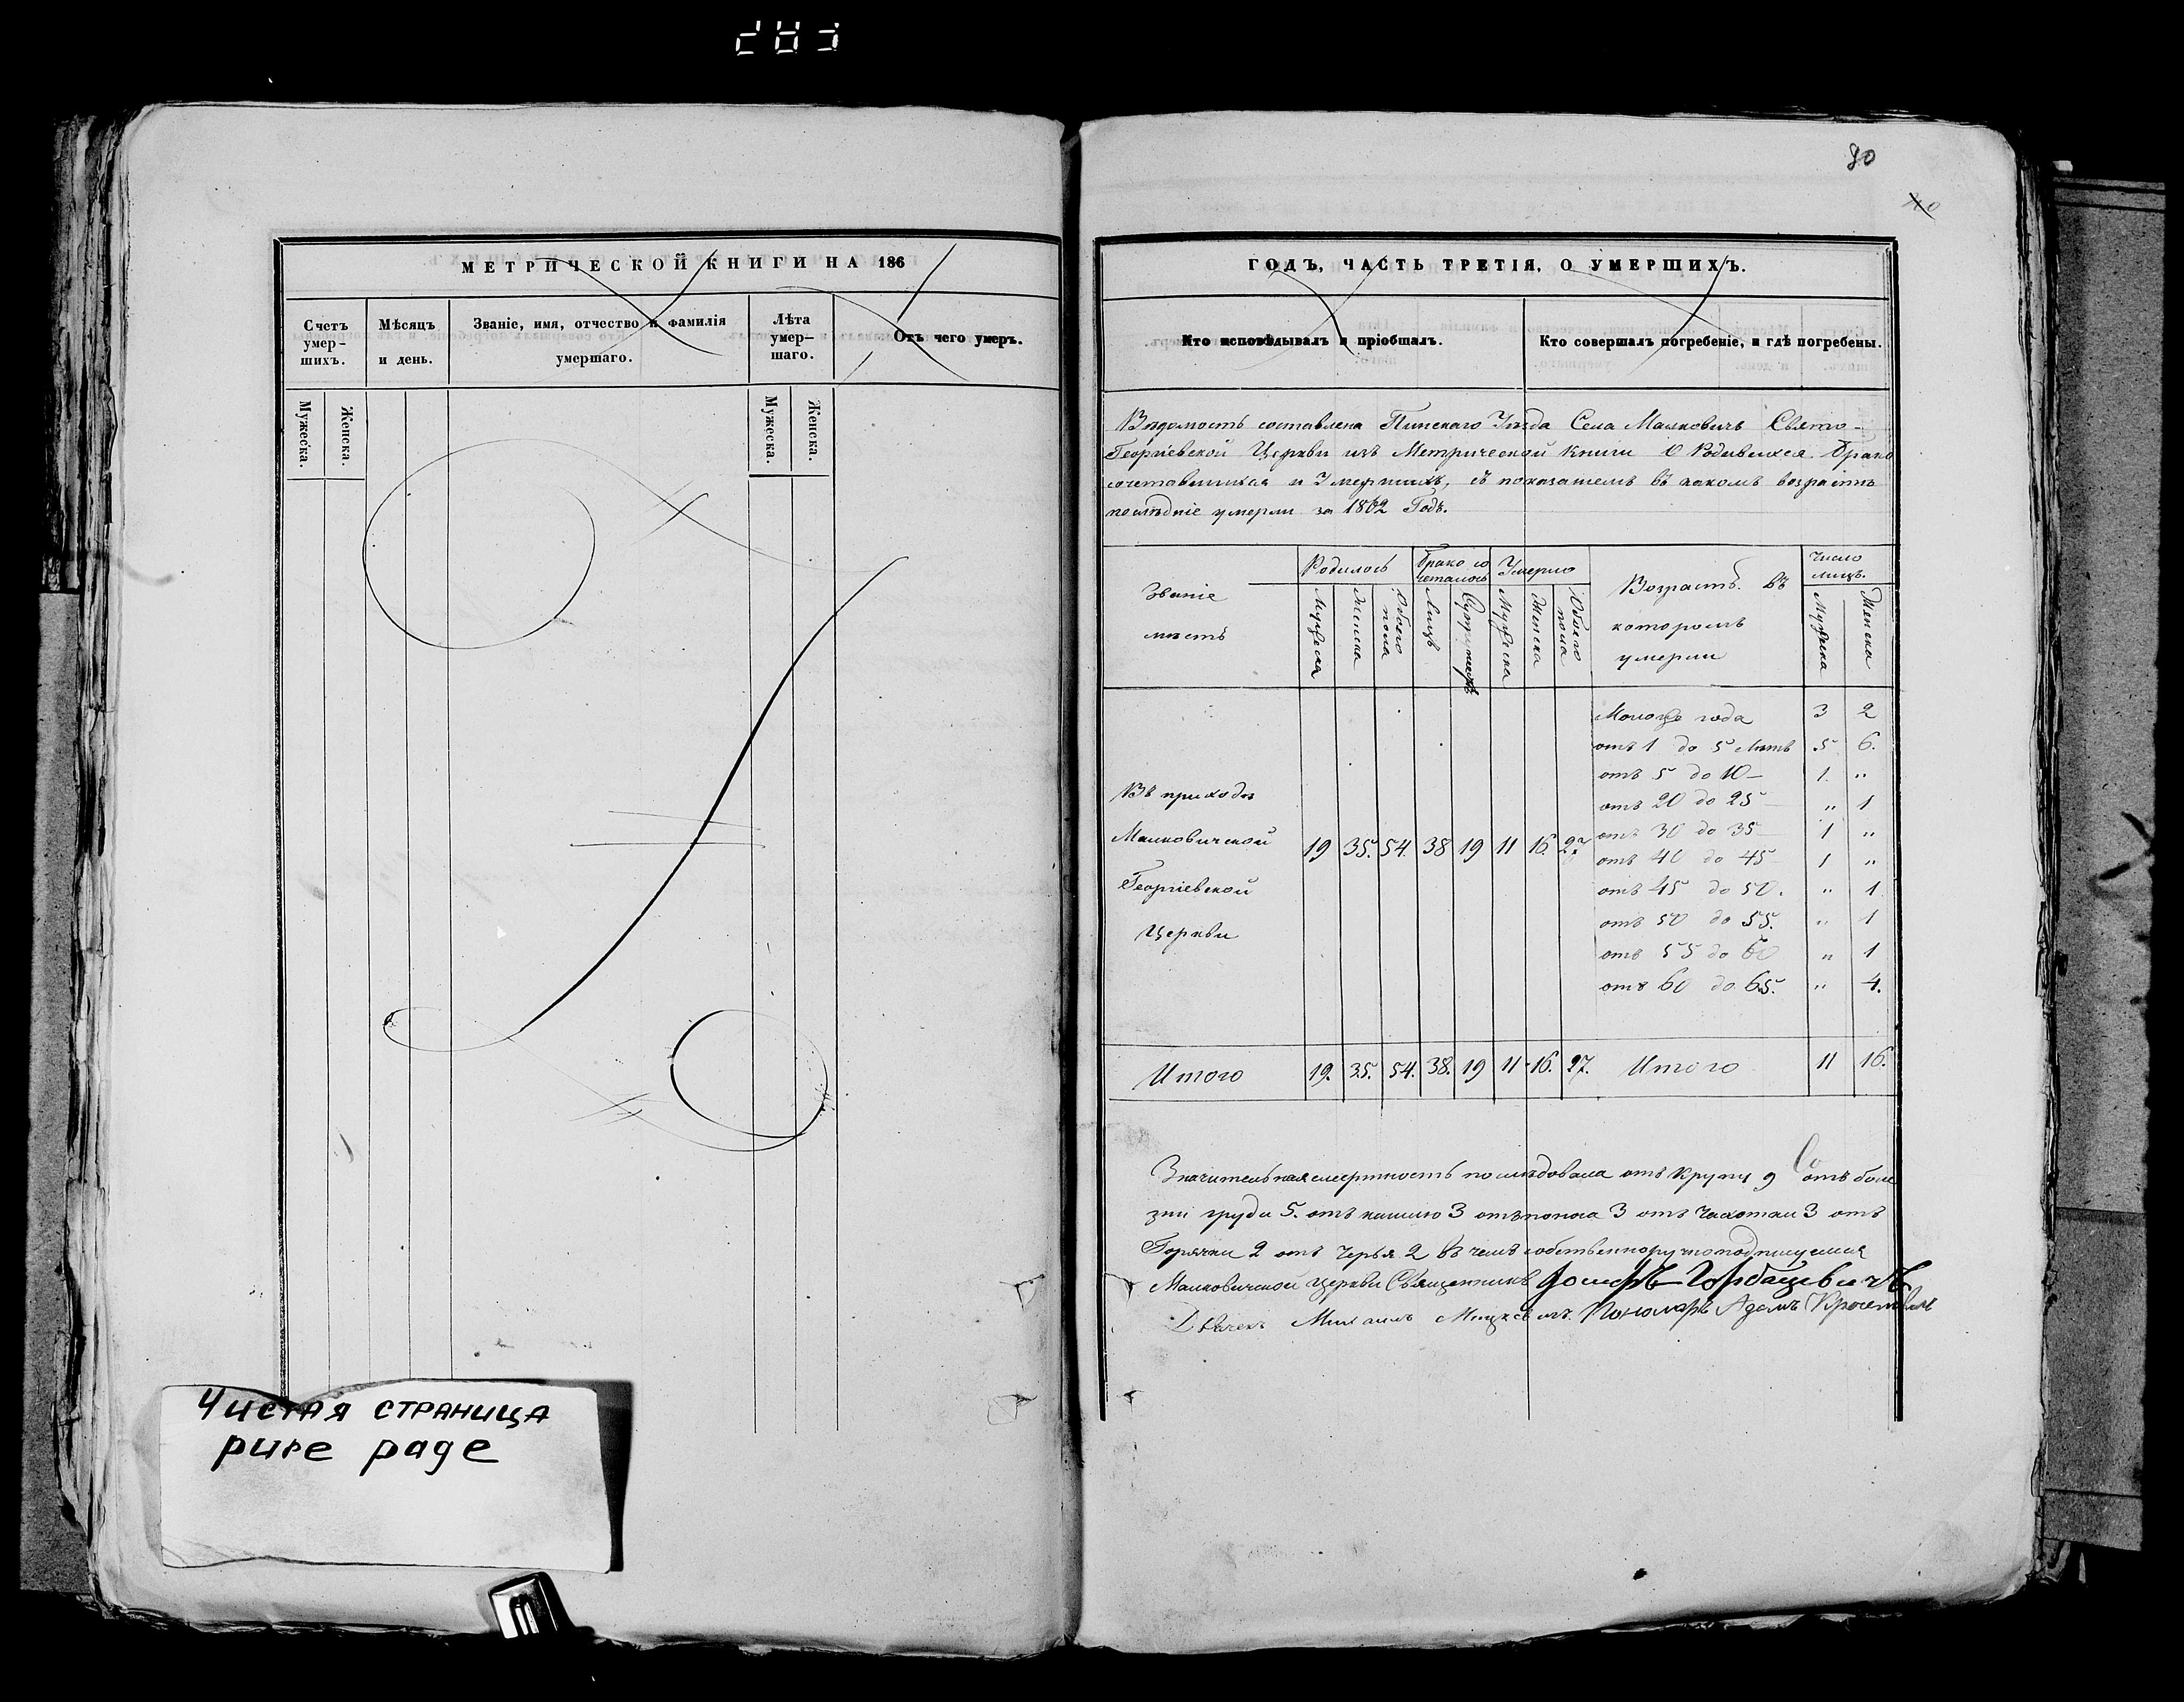 80
МЕТРИЧЕСКОЙ КНИГИ НА 186
Счетъ умер-шихъ.
Мѣсяцъ и день.
Званіе, имя, отчество и фамилія умершаго.
Лѣта умер-шаго.
Отъ чего умеръ.
Мужеска.
Женска.
Мужеска.
Женска.
Чистая страница
pure page
ГОДЪ, ЧАСТЬ ТРЕТІЯ, О УМЕРШИХЪ.
Кто исповѣдывалъ и пріобщалъ.
Кто совершалъ погребеніе, и гдѣ погребены.
Вѣдомость составлена Пинскаго Уѣзда Села Малковичъ Свято-
Георгіевской Церкви изъ Метрической Книги О Родившихся Брако
сочетавшихся и Умершихъ, съ показатемъ въ какомъ возрастѣ
послѣдніе умерли за 1862 Годъ.
Званіе мѣстъ
Родилось
Брако со четалось
Умерло
Возрастъ. въ которомъ умерли
Число лицъ.
Мужеска
Женска
Обоего пола
Лицъ
Мужеска
Женска
Обоего пола
Мужеска
Женска
Въ приходѣ
Малковичской
Георгіевской
Церкви
19 35. 54. 38 19 11 16. 27
Моложе года 3 2
отъ 1 до 5 Лѣтъ 5 6.
отъ 5 до 10 – 1. „
отъ 20 до 25 – „ 1
отъ 30 до 35 – 1 „
отъ 40 до 45 1 „
отъ 45 до 50. „ 1
отъ 50 до 55. „ 1
отъ 55 до 60 „ 1
отъ 60 до 65. „ 4.
Итого 19. 35. 54. 38. 19 11 16. 27. Итого 11 16.
Значительная смертность послѣдовала отъ Крупы 9 отъ болѣ
зни груди 5. отъ кашлю 3 отъ поноса 3 отъ Чахотки 3 отъ
Горячки 2 отъ 2 въ чемъ собственноручно подписуемся
Малковичской церкви Священникъ Іосифъ Горбацевичъ
Дьячекъ Михаилъ Пономарь Адамъ